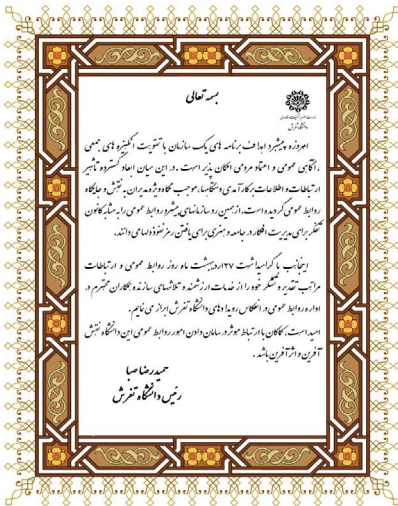 بسمه تعالی
وزارت علوم، تحقیقات و فناوری
دانشگاه تفرش
امروزه پیشبرد اهداف برنامه های یک سازمان با تقویت انگیزه های جمعی
، آگاهی عمومی و اعتماد مردمی امکان پذیر است . در این میان ابعاد گسترده تأثیر
ارتباطات و اطلاعات برکارآمدی دستگاهها، موجب نگاه ویژه مدیران به نقش و جایگاه
روابط عمومی گردیده است. از همین رو سازمانهای پیشرو روابط عمومی را به مثابه کانون
تفکر برای مدیریت افکار در جامعه و هنری برای یافتن رمز نفوذ دلها می دانند.
اینجانب با گرامیداشت ۲۷ اردیبهشت ماه روز روابط عمومی و ارتباطات
مراتب تقدیر و تشکر خود را از خدمات ارزشمند و تلاشهای سازنده همکاران محترم در
اداره روابط عمومی در انعکاس رویدادهای دانشگاه تفرش ابراز می نمایم.
امید است، کماکان با ارتباط موثر در سامان دادن امور روابط عمومی این دانشگاه نقش
آفرین و اثر آفرین باشد .
حمیدرضا صبا
رئیس دانشگاه تفرش